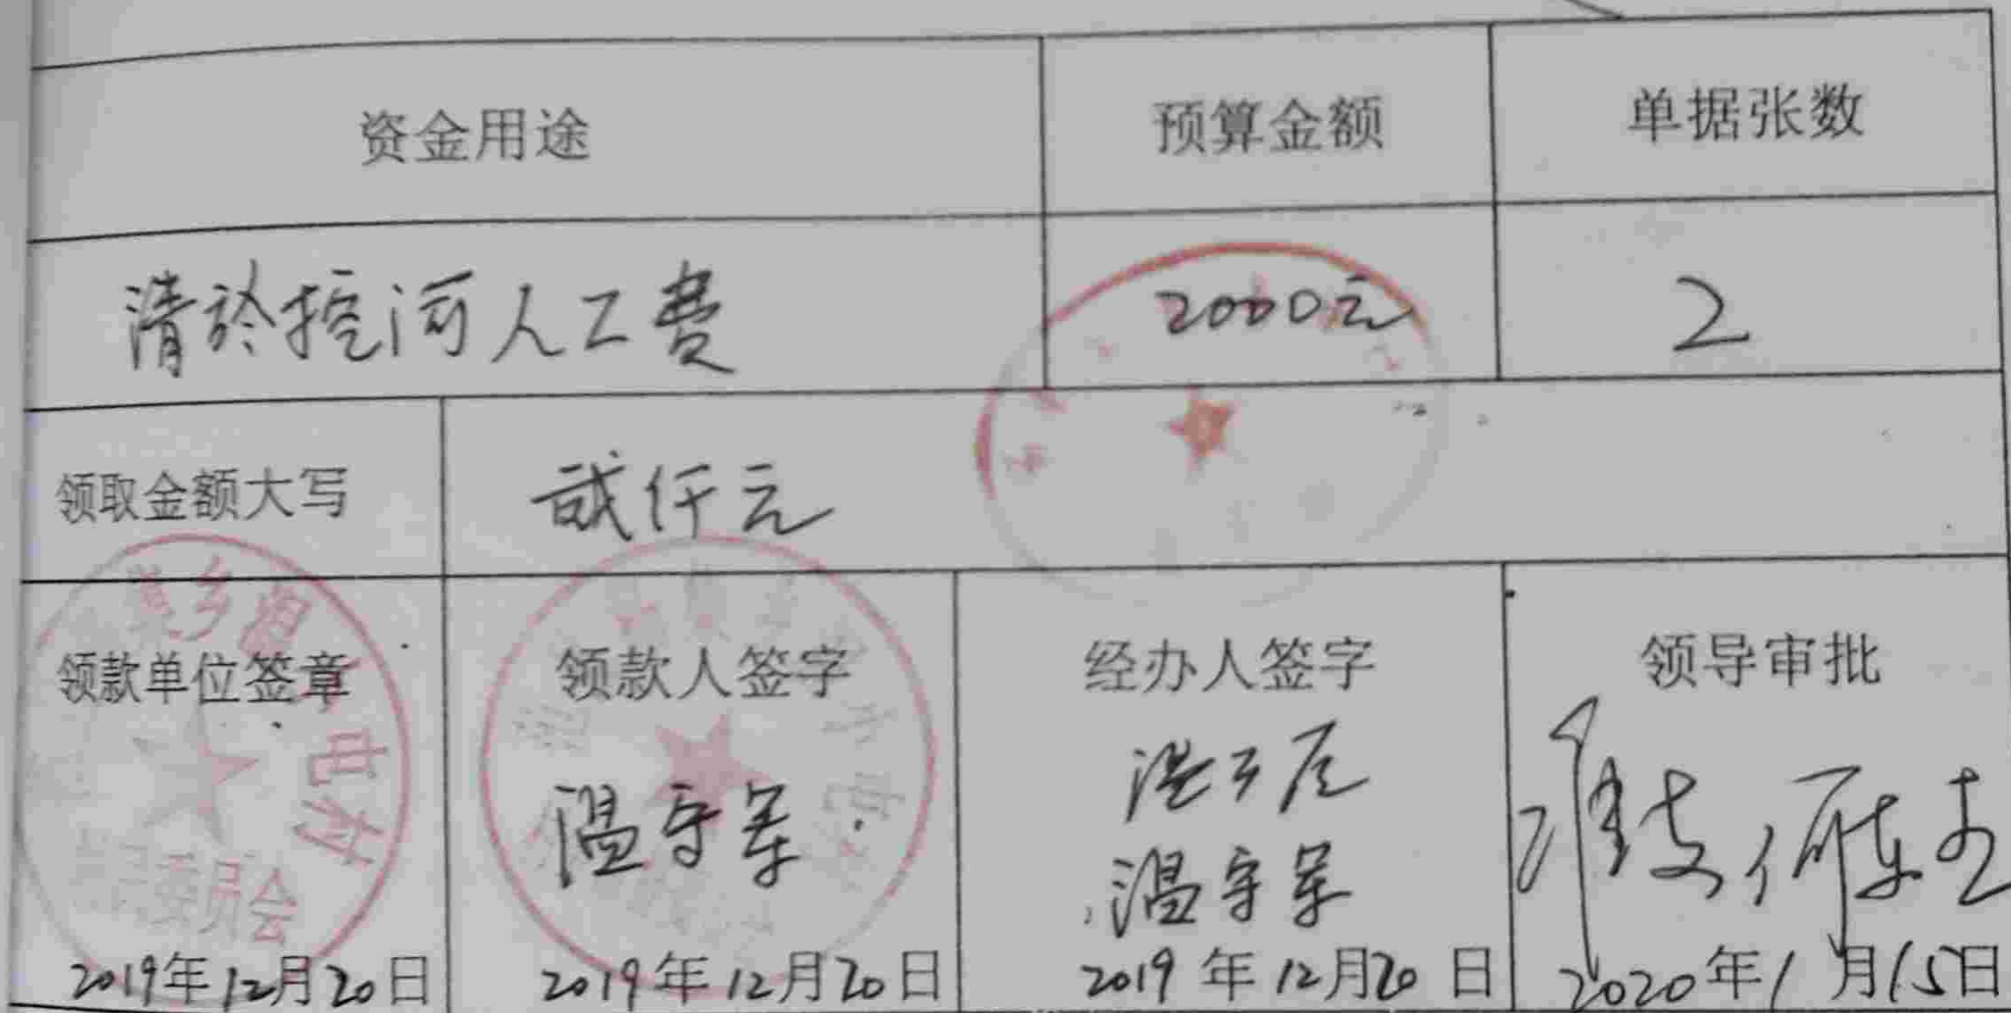 资金用途 预算金额 单据张数
清於挖河人工费 2000元 2
领取金额大写 贰仟元
领款单位签章 领款人签字 经办人签字 领导审批
温守军
温守军
准支
乡
屯村
委员会
2019年12月20日 2019年12月20日 2019年12月20日 2020年1月15日